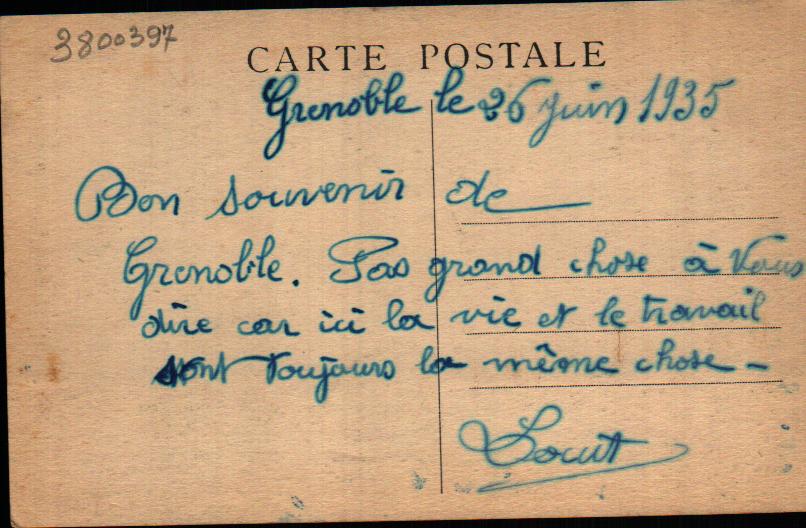 3800397
CARTE POSTALE
Grenoble le 26 juin 1935
Bon souvenir de
Grenoble. Pas grand chose à Vous
dire car ici la vie et le travail
sont toujours la même chose -